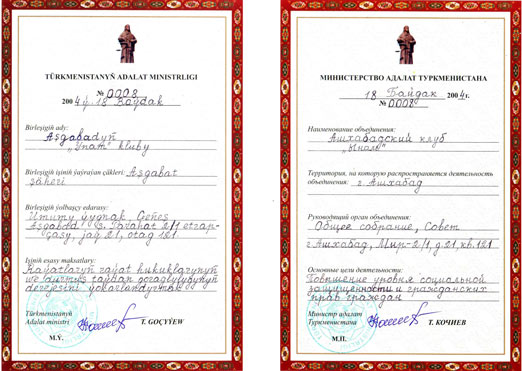 TÜRKMENISTANYŇ ADALAT MINISTRLIGI
№ 0008
2004 ý. 18 Baýdak
Birleşigiň ady:
Aşgabadyň
„Ynam" kluby
Birleşigiň işiniň ýaýraýan çäkleri: Aşgabat
şäheri
Birleşigiň ýolbaşçy edarasy:
Umumy ýygnak, Geňeş
Aşgabat ş. Parahat 2/1 etrap-
çasy, jaý 21, otag 121
Işiniň esasy maksatlary:
Raýatlaryň raýat hukuklarynyň
we taýdan goraglylygynyň
derejesini ýokarlandyrmak
Türkmenistanyň
Adalat ministri T. GOÇYÝEW
M.Ý.
МИНИСТЕРСТВО АДАЛАТ ТУРКМЕНИСТАНА
18 Байдак 2004 г.
№ 0008
Наименование объединения:
Ашхабадский клуб
„Ынам"
Территория, на которую распространяется деятельность
объединения: г. Ашхабад
Руководящий орган объединения:
Общее собрание, Совет
г. Ашхабад, Мир-2/1, д. 21, кв. 121
Основные цели деятельности:
Повышение уровня социальной
защищенности и гражданских
прав граждан
Министр адалат
Туркменистана Т. КОЧИЕВ
М.П.